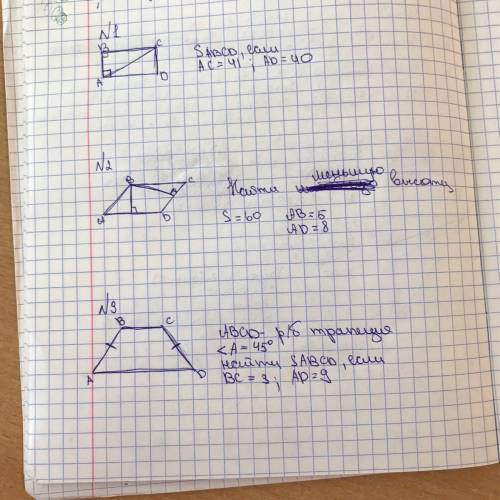 №1
B C
A D
SABCD, если
AC = 41; AD = 40
№2
B C
A D
Найти меньшую высоту
S = 60 AB = 5
AD = 8
№3
B C
A D
ABCD - р/б трапеция
<A = 45°
найти SABCD, если
BC = 3; AD = 9